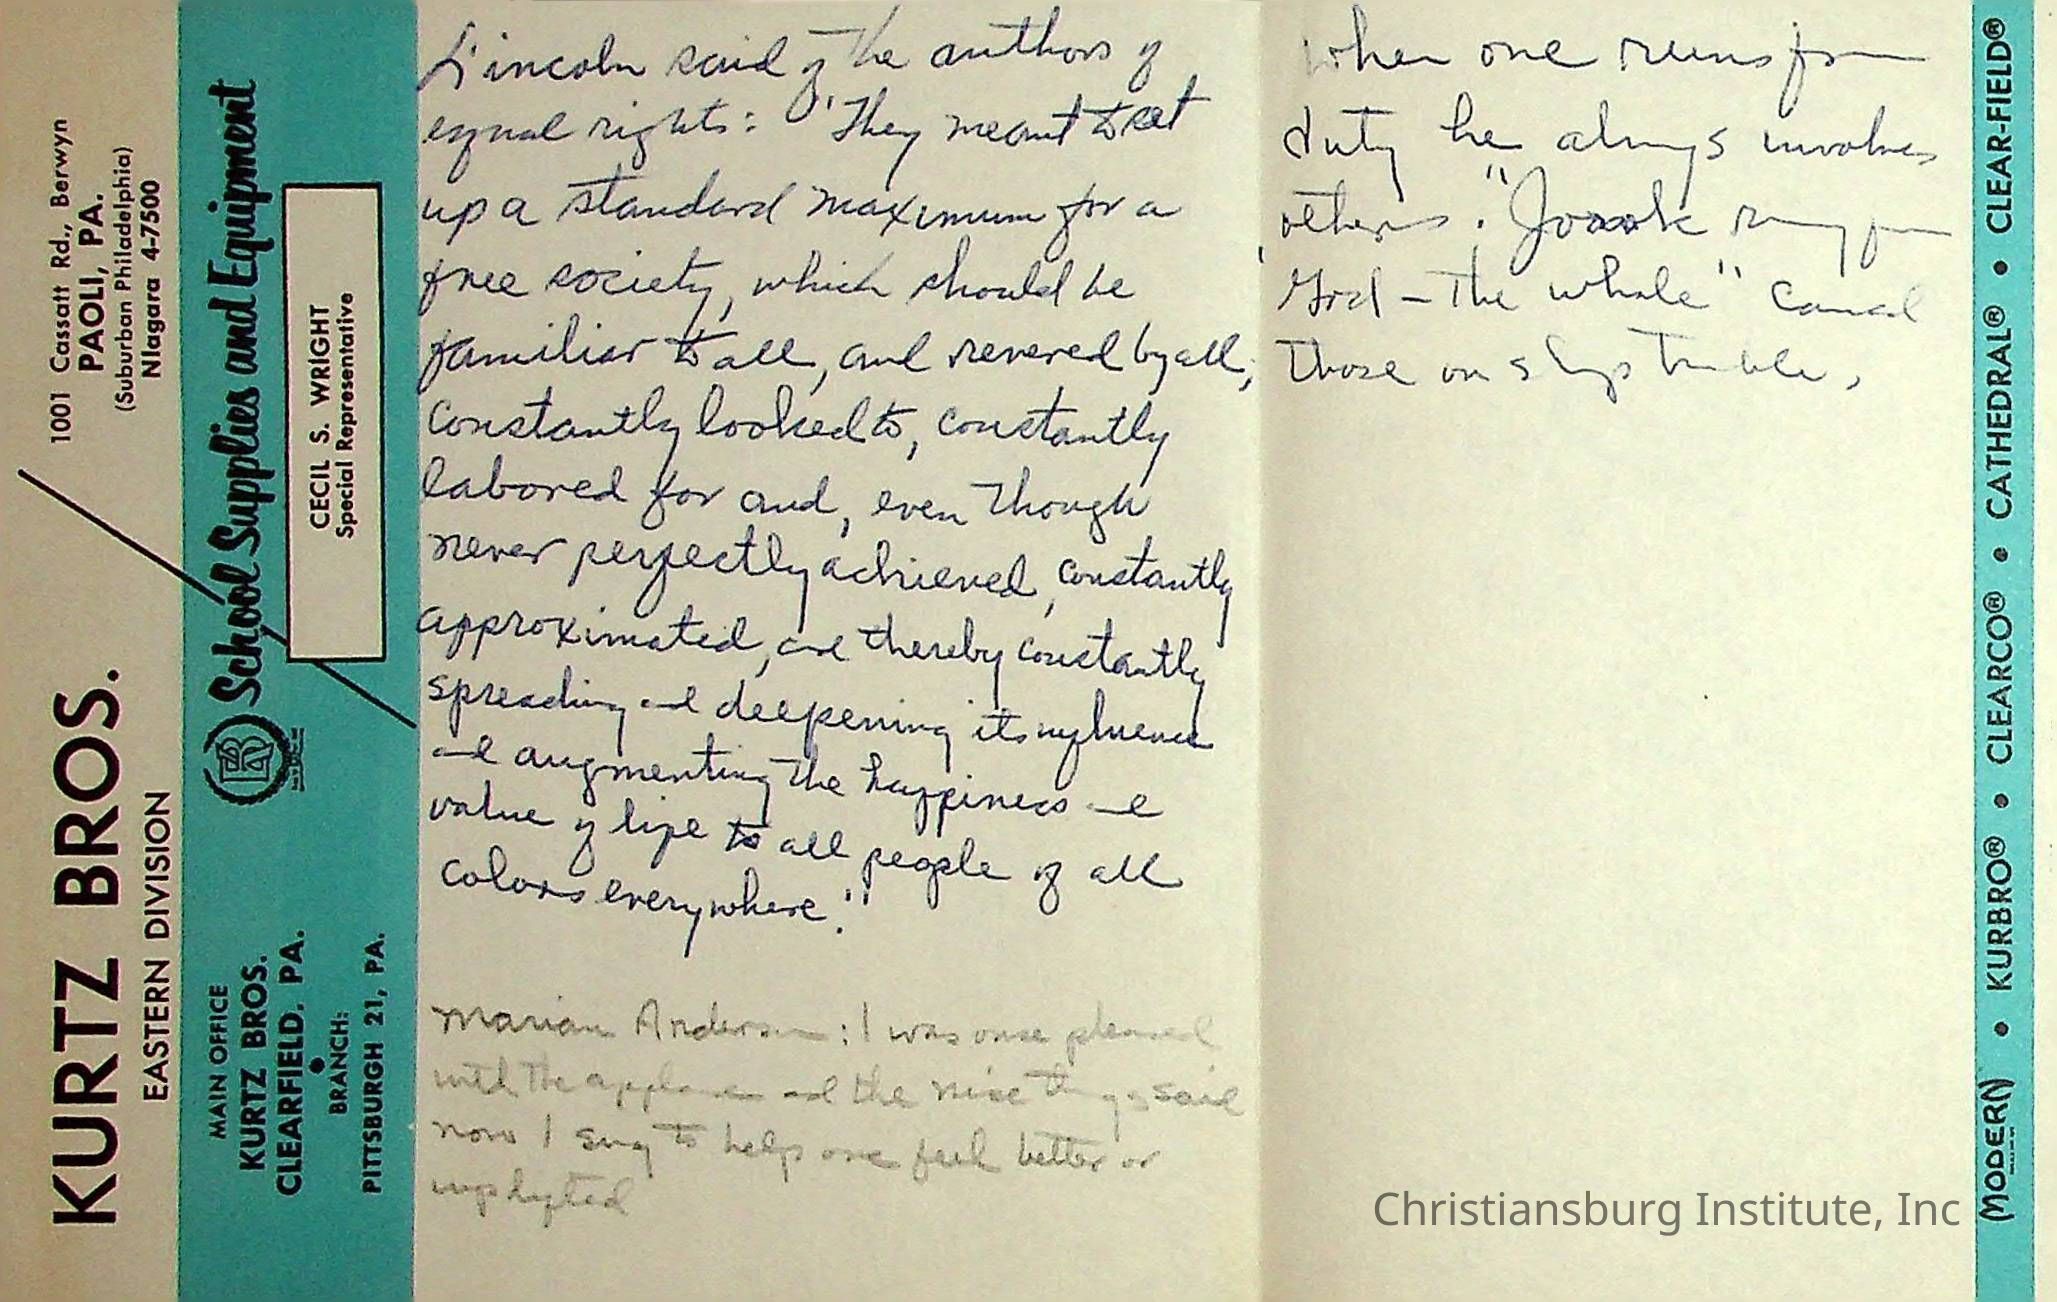 KURTZ BROS.
EASTERN DIVISION
1001 Cassatt Rd., Berwyn
PAOLI, PA.
(Suburban Philadelphia)
NIagara 4-7500
School Supplies and Equipment
CECIL S. WRIGHT
Special Representative
MAIN OFFICE
KURTZ BROS.
CLEARFIELD, PA.
BRANCH:
PITTSBURGH 21, PA.
Lincoln said of the authors of
equal rights: "They meant to set
up a standard maximum for a
free society, which should be
familiar to all, and revered by all;
constantly looked to, constantly
labored for and, even though
never perfectly achieved, constantly
approximated, and thereby constantly
spreading and deepening its influence
and augmenting the happiness and
value of life to all people of all
colors everywhere."
Marian Anderson: I was once pleased
with the applause and the nice things said
now I sing to help one feel better or
uplifted
When one runs from
duty he always involves
others. "
God - The whale" caused
those on ship trouble.
MODERN • KURBRO® • CLEARCO® • CATHEDRAL® • CLEAR-FIELD®
Christiansburg Institute, Inc